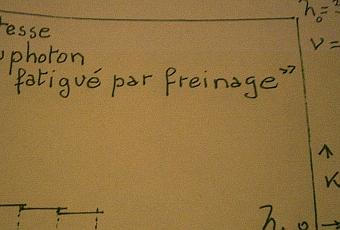 esse
photon
fatigué par freinage"
h₀=
v=
K
h₀